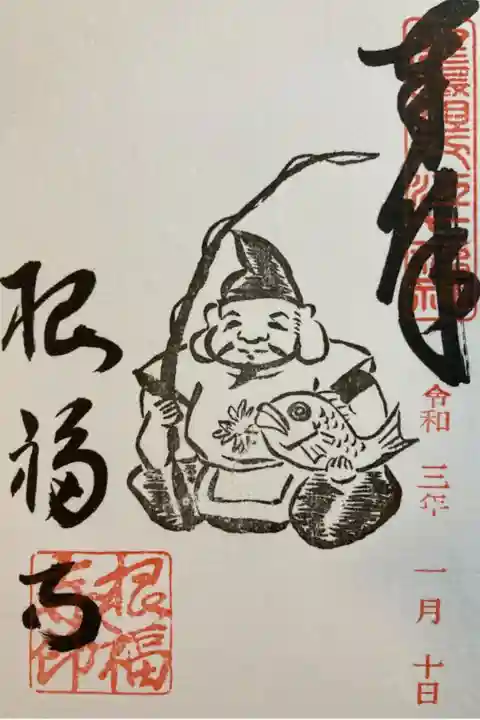 奉拝
令和三年一月十日
根福寺
根福
寺印